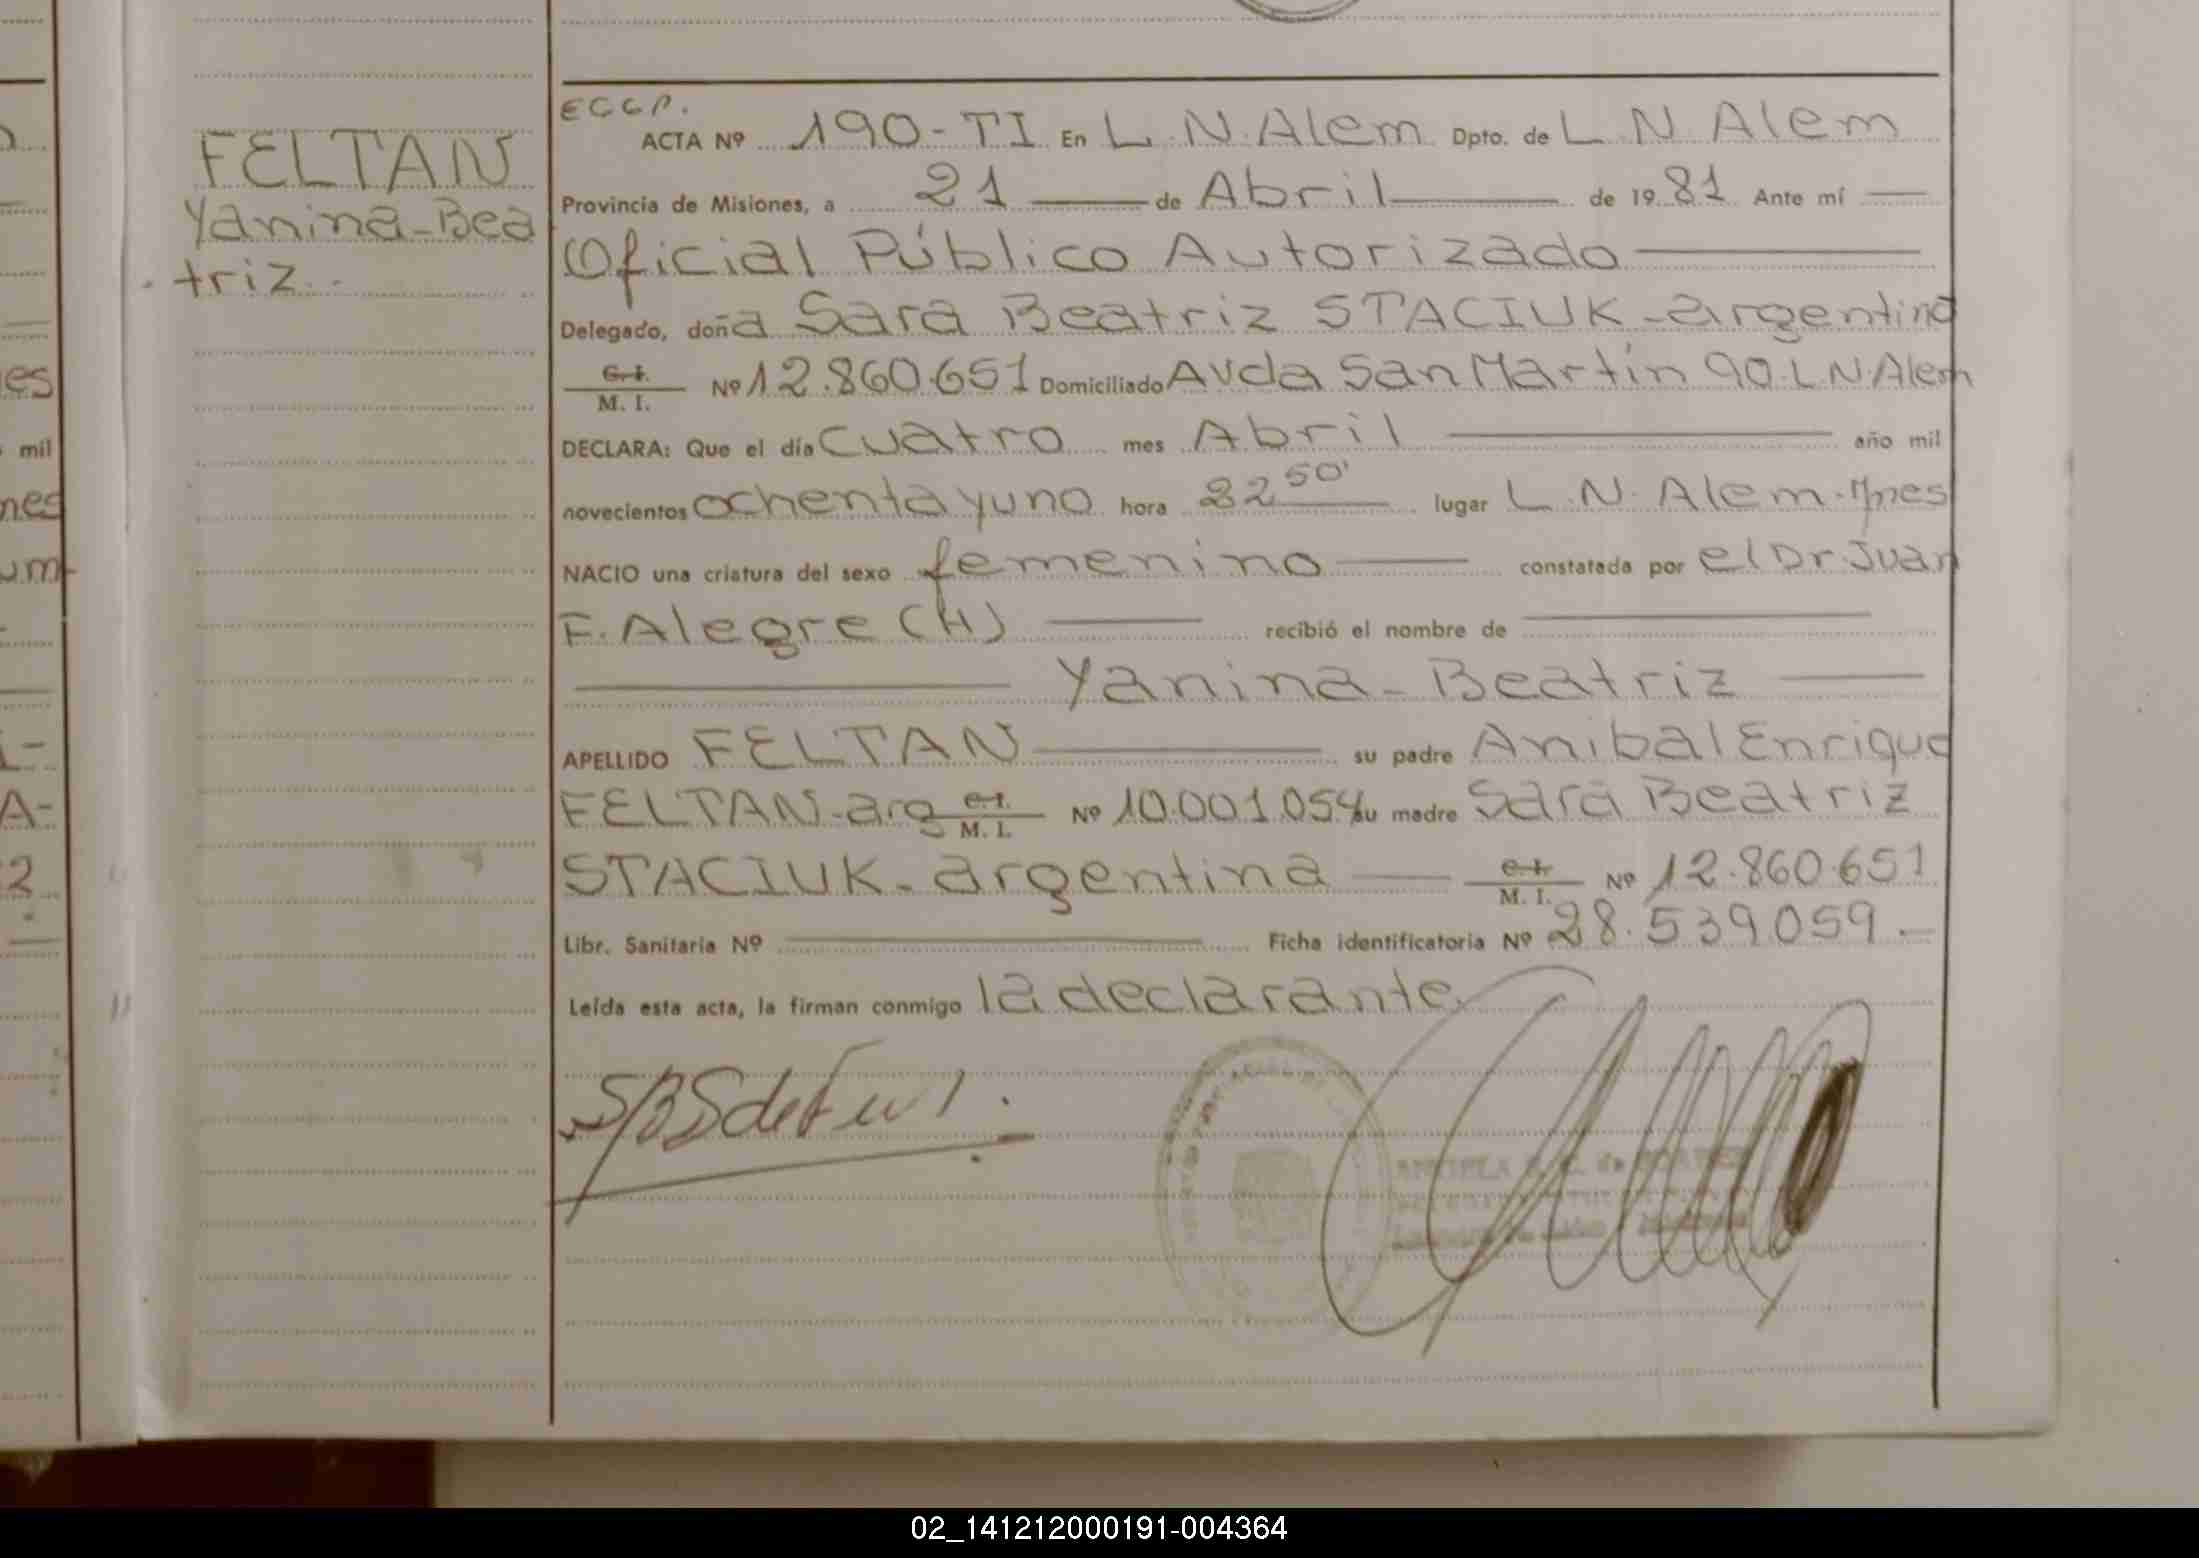 FELTAN
Yanina-Bea
triz.-
ECCP.
ACTA Nº 190-TI En L.N.Alem Dpto. de L N Alem
Provincia de Misiones, a 21 de Abril de 1981 Ante mí
Oficial Público Autorizado
Delegado, doña Sara Beatriz STACIUK-argentina
C.I. M. I. Nº 12.860.651 Domiciliado Avda San Martín 90.L.N.Alem
DECLARA: Que el día cuatro mes Abril año mil
novecientos ochenta y uno hora 22 50' lugar L.N. Alem.Mnes
NACIO una criatura del sexo femenino constatada por el Dr. Juan
F. Alegre (H) recibió el nombre de
Yanina-Beatriz
APELLIDO FELTAN su padre Anibal Enrique
FELTAN-arg C.I. M. I. Nº 10.001.054 su madre Sara Beatriz
STACIUK-argentina C.I. M. I. Nº 12.860.651
Libr. Sanitaria Nº Ficha identificatoria Nº 28.539.059.-
Leída esta acta, la firman conmigo la declarante.
02_141212000191-004364